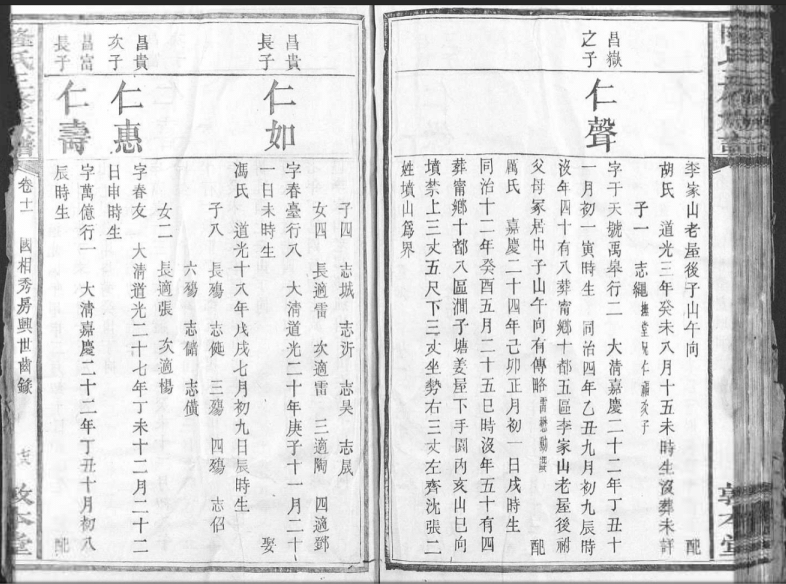 李家山老屋後子山午向 配
胡氏 道光三年癸未八月十五未時生沒葬未詳
子一 志繩 撫堂兄仁 次子
昌嶽之子
仁聲
字于天號禹皋行二 大清嘉慶二十二年丁丑十
一月初一寅時生 同治四年乙丑九月初九辰時
沒年四十有八葬甯鄉十都五區李家山老屋後祔
父母冢居中子山午向有傳略 配
厲氏 嘉慶二十四年己卯正月初一日戌時生
同治十二年癸酉五月二十五巳時沒年五十有四
葬甯鄉十都八區澗子塘姜屋下手園內亥山巳向
墳禁上三丈五尺下三丈坐勢右三丈左齊沈張二
姓墳山爲界
子四 志城 志沂 志昊 志晟
女四 長適雷 次適雷 三適陶 四適鄧
昌貴長子
仁如
字春臺行八 大清道光二十年庚子十一月二十
一日未時生 娶
馮氏 道光十八年戊戌七月初九日辰時生
子八 長殤 志侹 三殤 四殤 志佋
六殤 志儲 志儥
女二 長適張 次適楊
昌貴次子
仁惠
字春友 大清道光二十七年丁未十二月二十二
日申時生
昌富長子
仁壽
字萬億行一 大清嘉慶二十二年丁丑十月初八
辰時生 配
隆氏三修族譜
卷十一
國相秀房興世齒錄
敦本堂